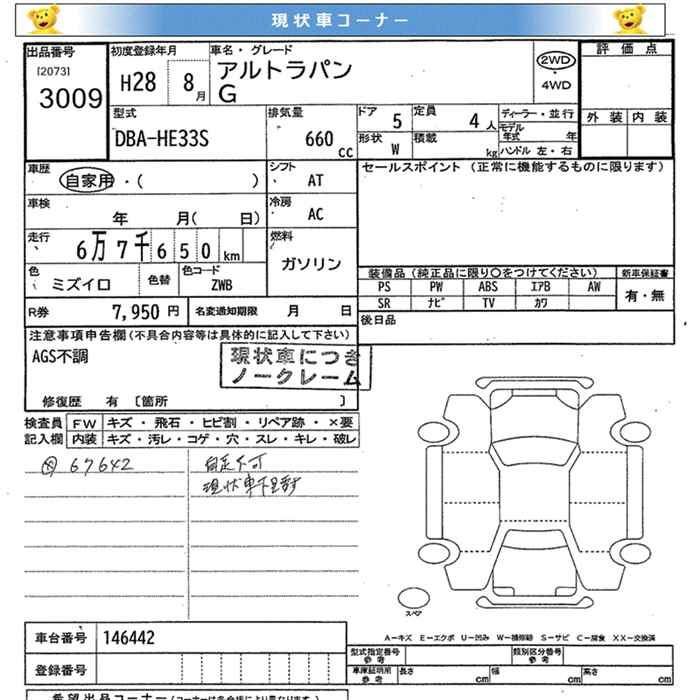 現状車コーナー
出品番号
[2073]
3009
初度登録年月
H28 8月
車名・グレード
アルトラパン
G
2WD
4WD
評価点
外装 内装
型式
DBA-HE33S
排気量
660 cc
ドア 5
定員 4人
形状 W
積載 kg
ディーラー・並行
モデル年式 年
ハンドル 左・右
車歴
自家用・( )
シフト
AT
車検
年 月( 日)
冷房
AC
走行
6万7千650km
燃料
ガソリン
色
ミズイロ
色替
色コード
ZWB
R券 7,950円
名変通知期限 月 日
セールスポイント (正常に機能するものに限ります)
装備品 (純正品に限り〇をつけてください)
PS PW ABS エアB AW
SR ナビ TV カワ
新車保証書
有・無
後日品
注意事項申告欄(不具合内容等は具体的に記入して下さい)
AGS不調
現状車につき
ノークレーム
修復歴 有 〔箇所 〕
検査員記入欄
FW キズ・飛石・ヒビ割・リペア跡・×要
内装 キズ・汚レ・コゲ・穴・スレ・キレ・破レ
67642
自走不可
スペア
A-キズ E-エクボ U-凹み W-補修跡 S-サビ C-腐食 XX-交換済
車台番号 146442
登録番号
型式指定番号 参考
類別区分番号 参考
車庫証明用 参考
長さ cm 幅 cm 高さ cm
希望出品コーナー(コーナーは各会場により異なります)